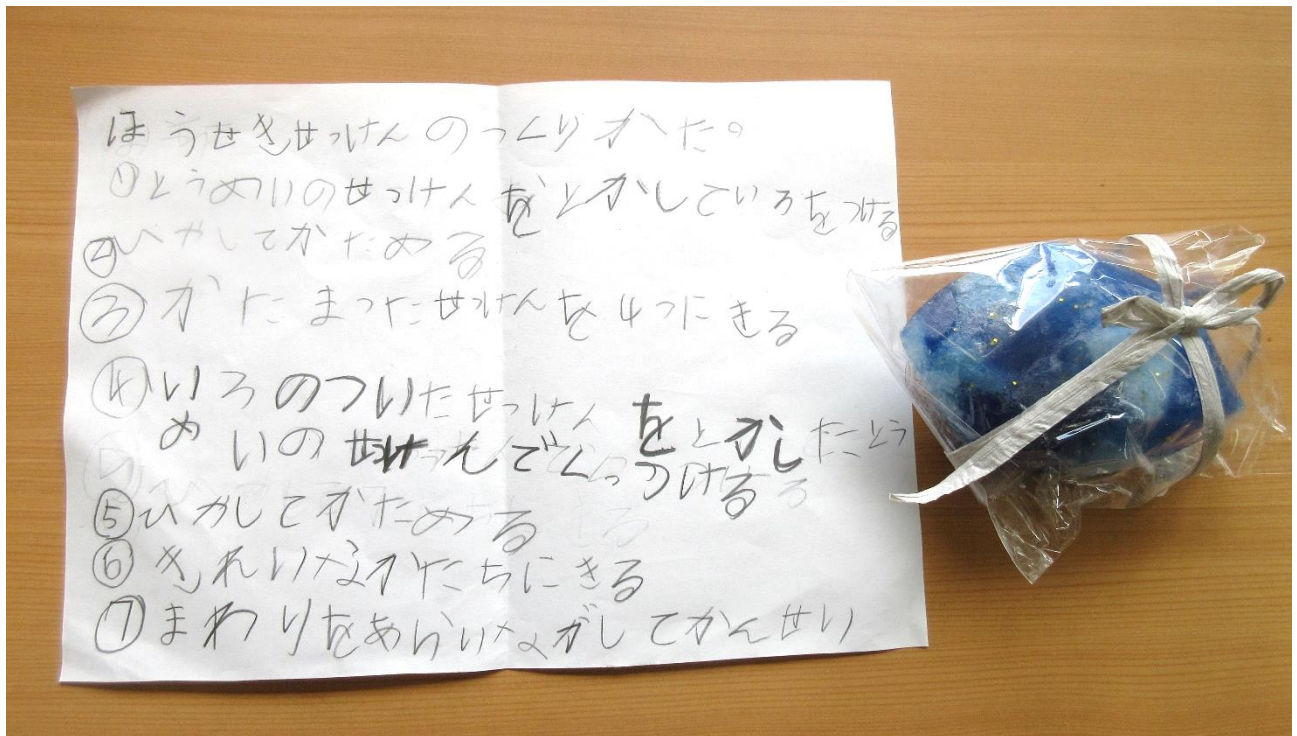 ほうせきせっけんのつくりかた。
①とうめいのせっけんをとかしているをつける
②ひやしてかためる
③かたまったせっけんを4つにきる
④いろのついたせっけんをとかしたとう
めいのせっけんでくっつける
⑤ひやしてかためる
⑥きれいなかたちにきる
⑦まわりをあらいながしてかんせい